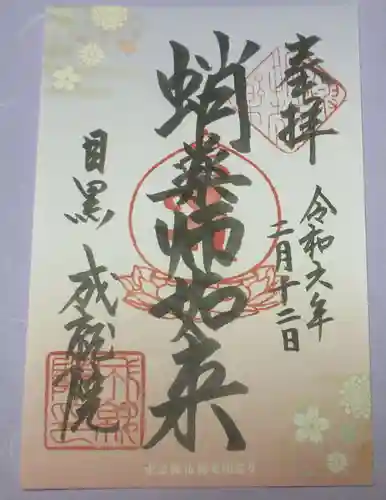 奉拝
令和六年
二月十二日
蛸薬師如来
目黒 成就院